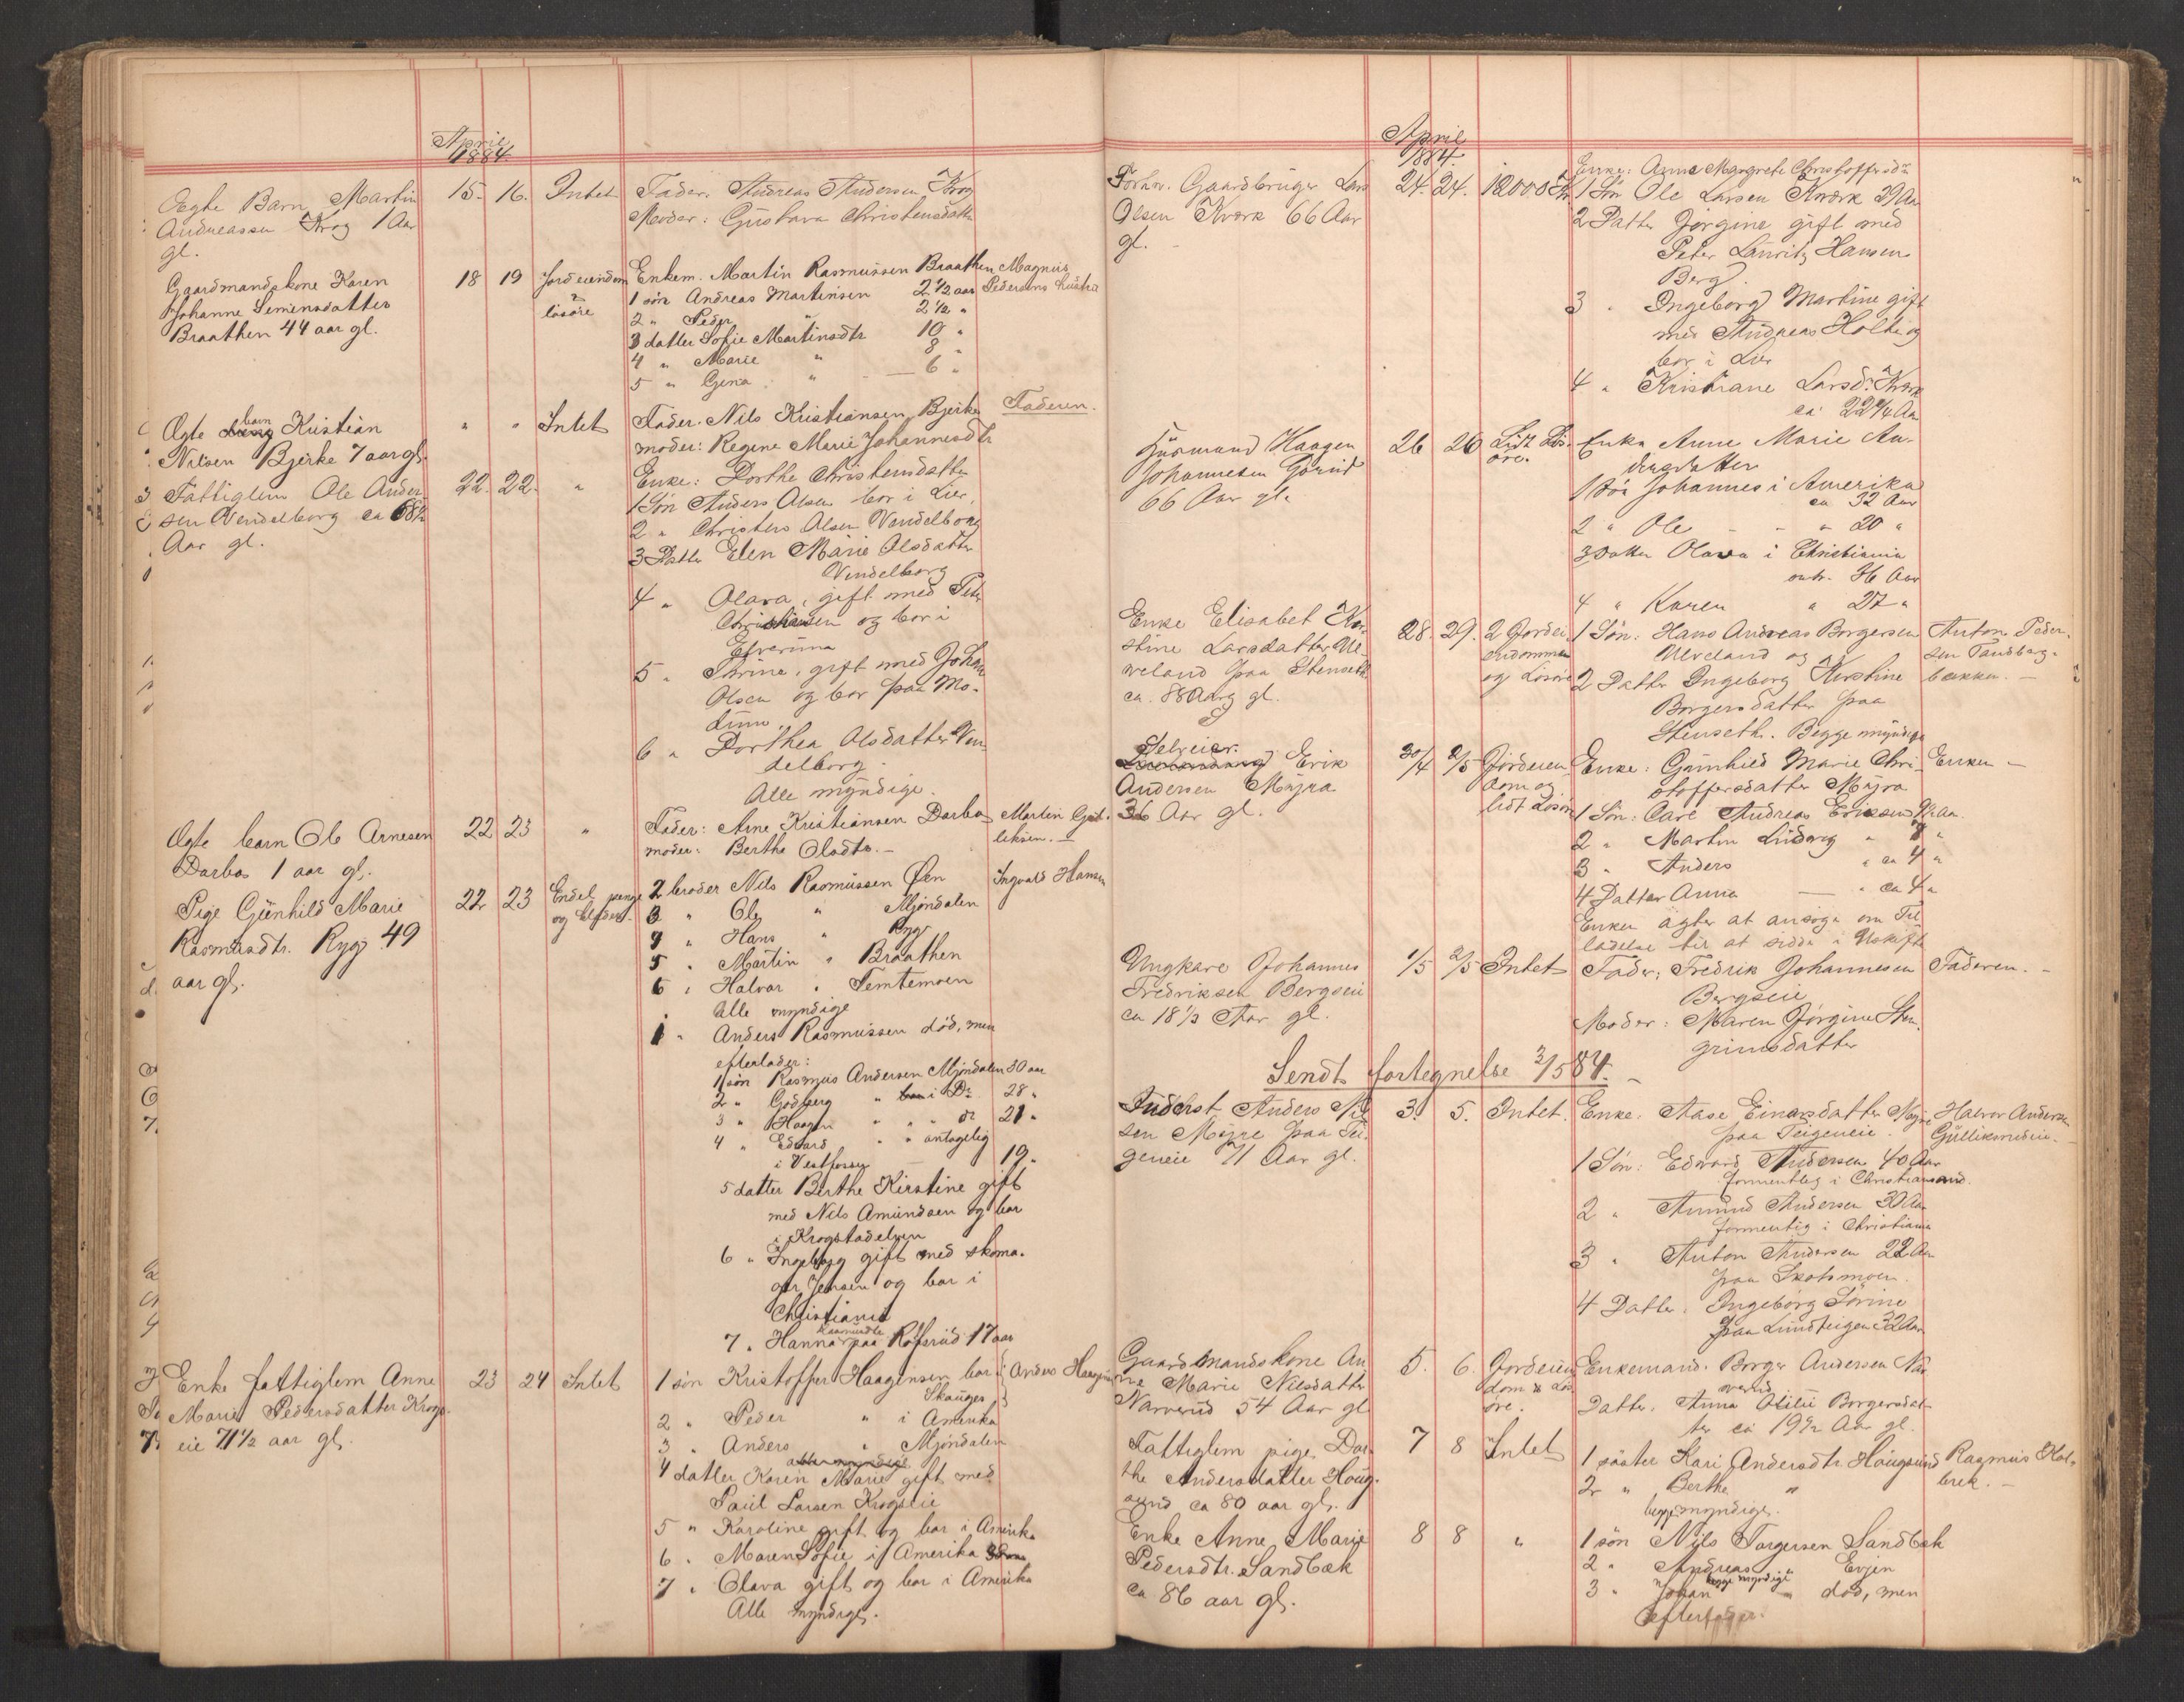 April
1884
Ægte Barn Martin 15. 16. Intet Fader. Andreas Andersen Krog
Andreassen Krog 1 Aar Moder: Gustava Christensdatter
gl.
Gaardmandskone Karen 18 19 Jordeiendom Enkem. Martin Rasmussen Braathen Magnus
Johanne Simensdatter & løsøre 1 søn Andreas Martinsen 2 1/2 aar Pedersens hustru
Braathen 44 aar gl. 2 " Peder " 2 1/2 "
3 datter Sofie Martinsdtr 10 "
4 " Marie " 8 "
5 " Gina " 6 "
Ægte barn Kristian " " Intet Fader. Nils Kristiansen Bjerke Faderen.
Nilsen Bjerke 7 aar gl. moder: Regine Marie Johannesdtr
Fattiglem Ole Ander- 22. 22. " Enke: Dorthe Christensdatter
sen Vendelborg ca 68 1/2 1 Søn Anders Olsen bor i Lier,
Aar gl. 2 " Christen Olsen Vendelborg
3 Datter Elen Marie Olsdatter
Vendelborg
4 " Olava, gift med Peter
Christiansen og bor i
5 " Thrine, gift med Johan
Olsen og bor paa Mo-
dum.
6 " Dorthea Olsdatter Ven-
delborg.
Alle myndige.
Ægte barn Ole Arnesen 22 23 " Fader: Arne Kristiansen Darbo Martin Gut-
Darbo 1 aar gl. moder: Berthe Olsdtr. - liksen. -
Pige Gunhild Marie 22 23 Endel penge 2 broder Nils Rasmussen Øen Ingvald Hansen
Rasmusdtr. Ryg 49 og klæder. 3 " Ole " Mjøndalen
aar gl. 4 " Hans " Ryg
5 " Martin " Braathen
6 " Halvor " Temtemoen
Alle myndige
1 " Anders Rasmussen død, men
efterlader:
1 søn Rasmus Andersen Mjøndalen 30 aar
2 " Godberg " i Dr. 28 "
3 " Haagen " " " dr 21 "
4 " Edvard " " antagelig
i Vestfossen 19 "
5 datter Berthe Kirstine gift
med Nils Amundsen og bor
i Krogstadelven
6 " Ingeborg gift med skoma-
ger Jensen og bor i
Christiania
7 " Hanna Rasmusdtr paa Rofsrud 17 aar
Enke fattiglem Anne 23 24 Intet 1 søn Kristoffer Haagensen bor i Anders Haagensen
Marie Pedersdatter Krogs- Skauger
eie 71 1/2 aar gl. 2 " Peder " i Amerika
3 " Anders " Mjøndalen
4 datter Karen Marie gift med
Paul Larsen Krogseie
5 " Karoline gift og bor i Amerika
6 " Maren Sofie i Amerika
7 " Olava gift og bor i Amerika
Alle myndige.
April
1884.
Forhv. Gaardbruger Lars 24. 24. 12000 Kr Enke: Anna Margrete Christoffersdtr
Olsen Kværk 66 Aar 1 Søn Ole Larsen Kværk 29 Aar
gl. 2 Datter Jørgine gift med
Peter Lauritz Hansen
Berg.
3 " Ingeborg Martine gift
med Andreas Holte og
bor i Lier
4 " Kristiane Larsdr. Kværk
ca 22 3/4 Aar
Husmand Haagen 26 26 Lidt Løs- Enke Anne Marie An-
Johannesen Grønd øre. dersdatter
66 Aar gl. 1 Søn Johannes i Amerika
ca 32 Aar
2 " Ole - - " 20 "
3 Datter Olava i Christiania
omtr. 36 Aar
4 " Karen " 27 "
Enke Elisabet Kir- 28. 29. 2 Jordei- 1 Søn: Hans Andreas Borgersen Anton Peder-
stine Larsdatter Ul- endommen Ulveland og sen Sandberg-
veland paa Stenseth og Løsøre 2 Datter Ingeborg Kirstine bakken. -
ca. 88 Aar gl. Borgersdatter paa
Stenseth. Begge myndige
Selveier. Erik 30/4 2/5 Jordeien- Enke: Gunhild Marie Chri- Enken -
Andersen Myra dom og stoffersdatter Myra
36 Aar gl. lidt Løsøre 1 Søn: Carl Andreas Eriksen 9 1/2 Aar
2 " Martin Ludvig " 7 "
3 " Anders " ca 4 "
4 Datter Anna — " ca 4 "
Enken agter at ansøge om Til-
ladelse til at sidde i Uskifte
Ungkarl Johannes 1/5 2/5 Intet Fader: Fredrik Johannesen Faderen. -
Fredriksen Bergseie Bergseie
ca 18 1/2 Aar gl. Moder: Maren Jørgine Sten-
grimsdatter
Sendt fortegnelse 3/5 84. -
Inderst Anders Nil- 3. 5. Intet. Enke. Aase Einarsdatter Myre Halvor Andersen
sen Myre paa Tei- paa Teigeneie. Gulliksrudeie. -
geneie 71 Aar gl. 1 Søn: Edvard Andersen 40 Aar
formentlig i Christiansand.
2 " Amund Andersen 30 Aar
formentlig i Christiania
3 " Anton Andersen 22 Aar
paa Skotsmoen.
4 Datter: Ingeborg Sørine
paa Lundteigen 32 Aar
Gaardmandskone An- 5. 6. Jordeien- Enkemand. Borger Andersen Nar-
ne Marie Nilsdatter dom & Løs- verud
Narverud 54 Aar gl. øre. Datter. Anna Otilie Borgersdat-
ter ca 19 1/2 Aar gl.
Fattiglem pige Dor- 7 8 Intet 1 søster Kari Andersdtr. Hougsund Rasmus Hol-
the Andersdatter Houg- 2 " Berthe " brek. -
sund ca 80 aar gl. begge myndige.
Enke Anne Marie 8 8 " 1 søn Nils Torgersen Sandbæk
Pedersdtr. Sandbæk 2 " Andreas " Evjen
ca 86 aar gl. begge myndige
3 " Johan " død, men
efterlader.